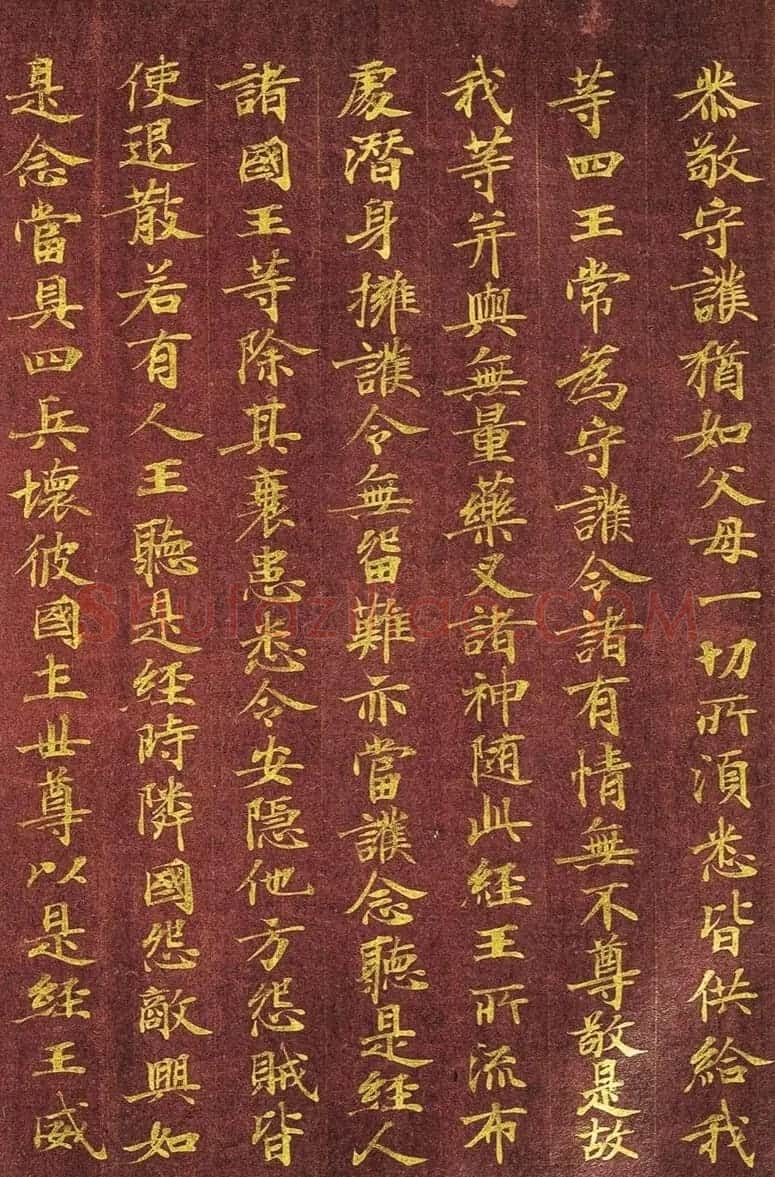 恭敬守護猶如父母一切所須悉皆供給我
等四王常為守護令諸有情無不尊敬是故
我等并與無量藥叉諸神随此經王所流布
處潛身擁護令無留難亦當護念聽是經人
諸國王等除其衰患悉令安隱他方怨賊皆
使退散若有人王聽是經時隣國怨敵興如
是念當具四兵壞彼國土世尊以是經王威